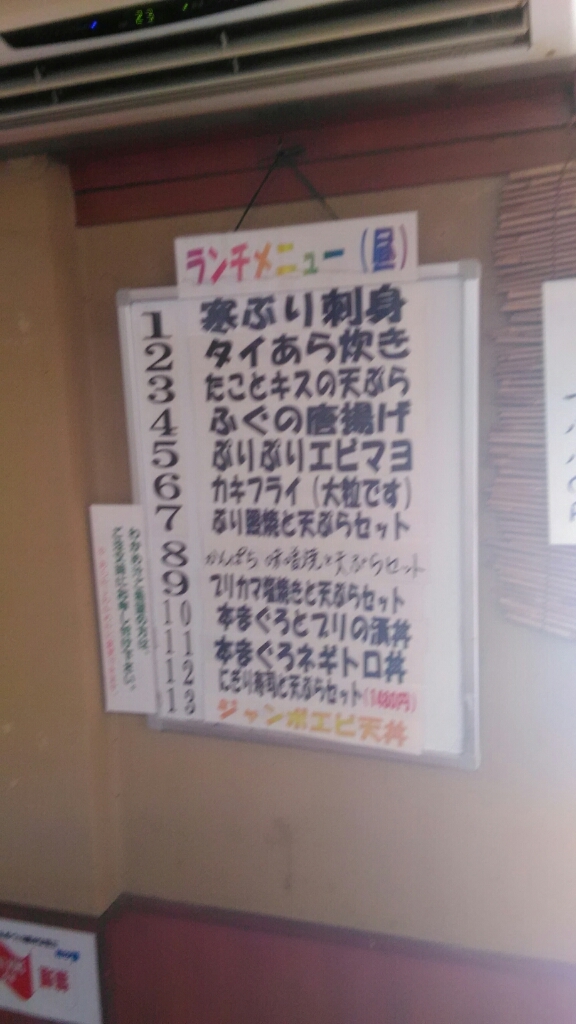 23
ランチメニュー(昼)
1 寒ぶり刺身
2 タイあら炊き
3 たことキスの天ぷら
4 ふぐの唐揚げ
5 ぷりぷりエビマヨ
6 カキフライ(大粒です)
7 ぶり照焼と天ぷらセット
8 かんぱち 味噌焼と天ぷらセット
9 ブリカマ塩焼きと天ぷらセット
10 本まぐろとブリの漬丼
11 本まぐろネギトロ丼
12 にぎり寿司と天ぷらセット(1480円)
13 ジャンボエビ天丼
ご注文時にお申し付け下さい。